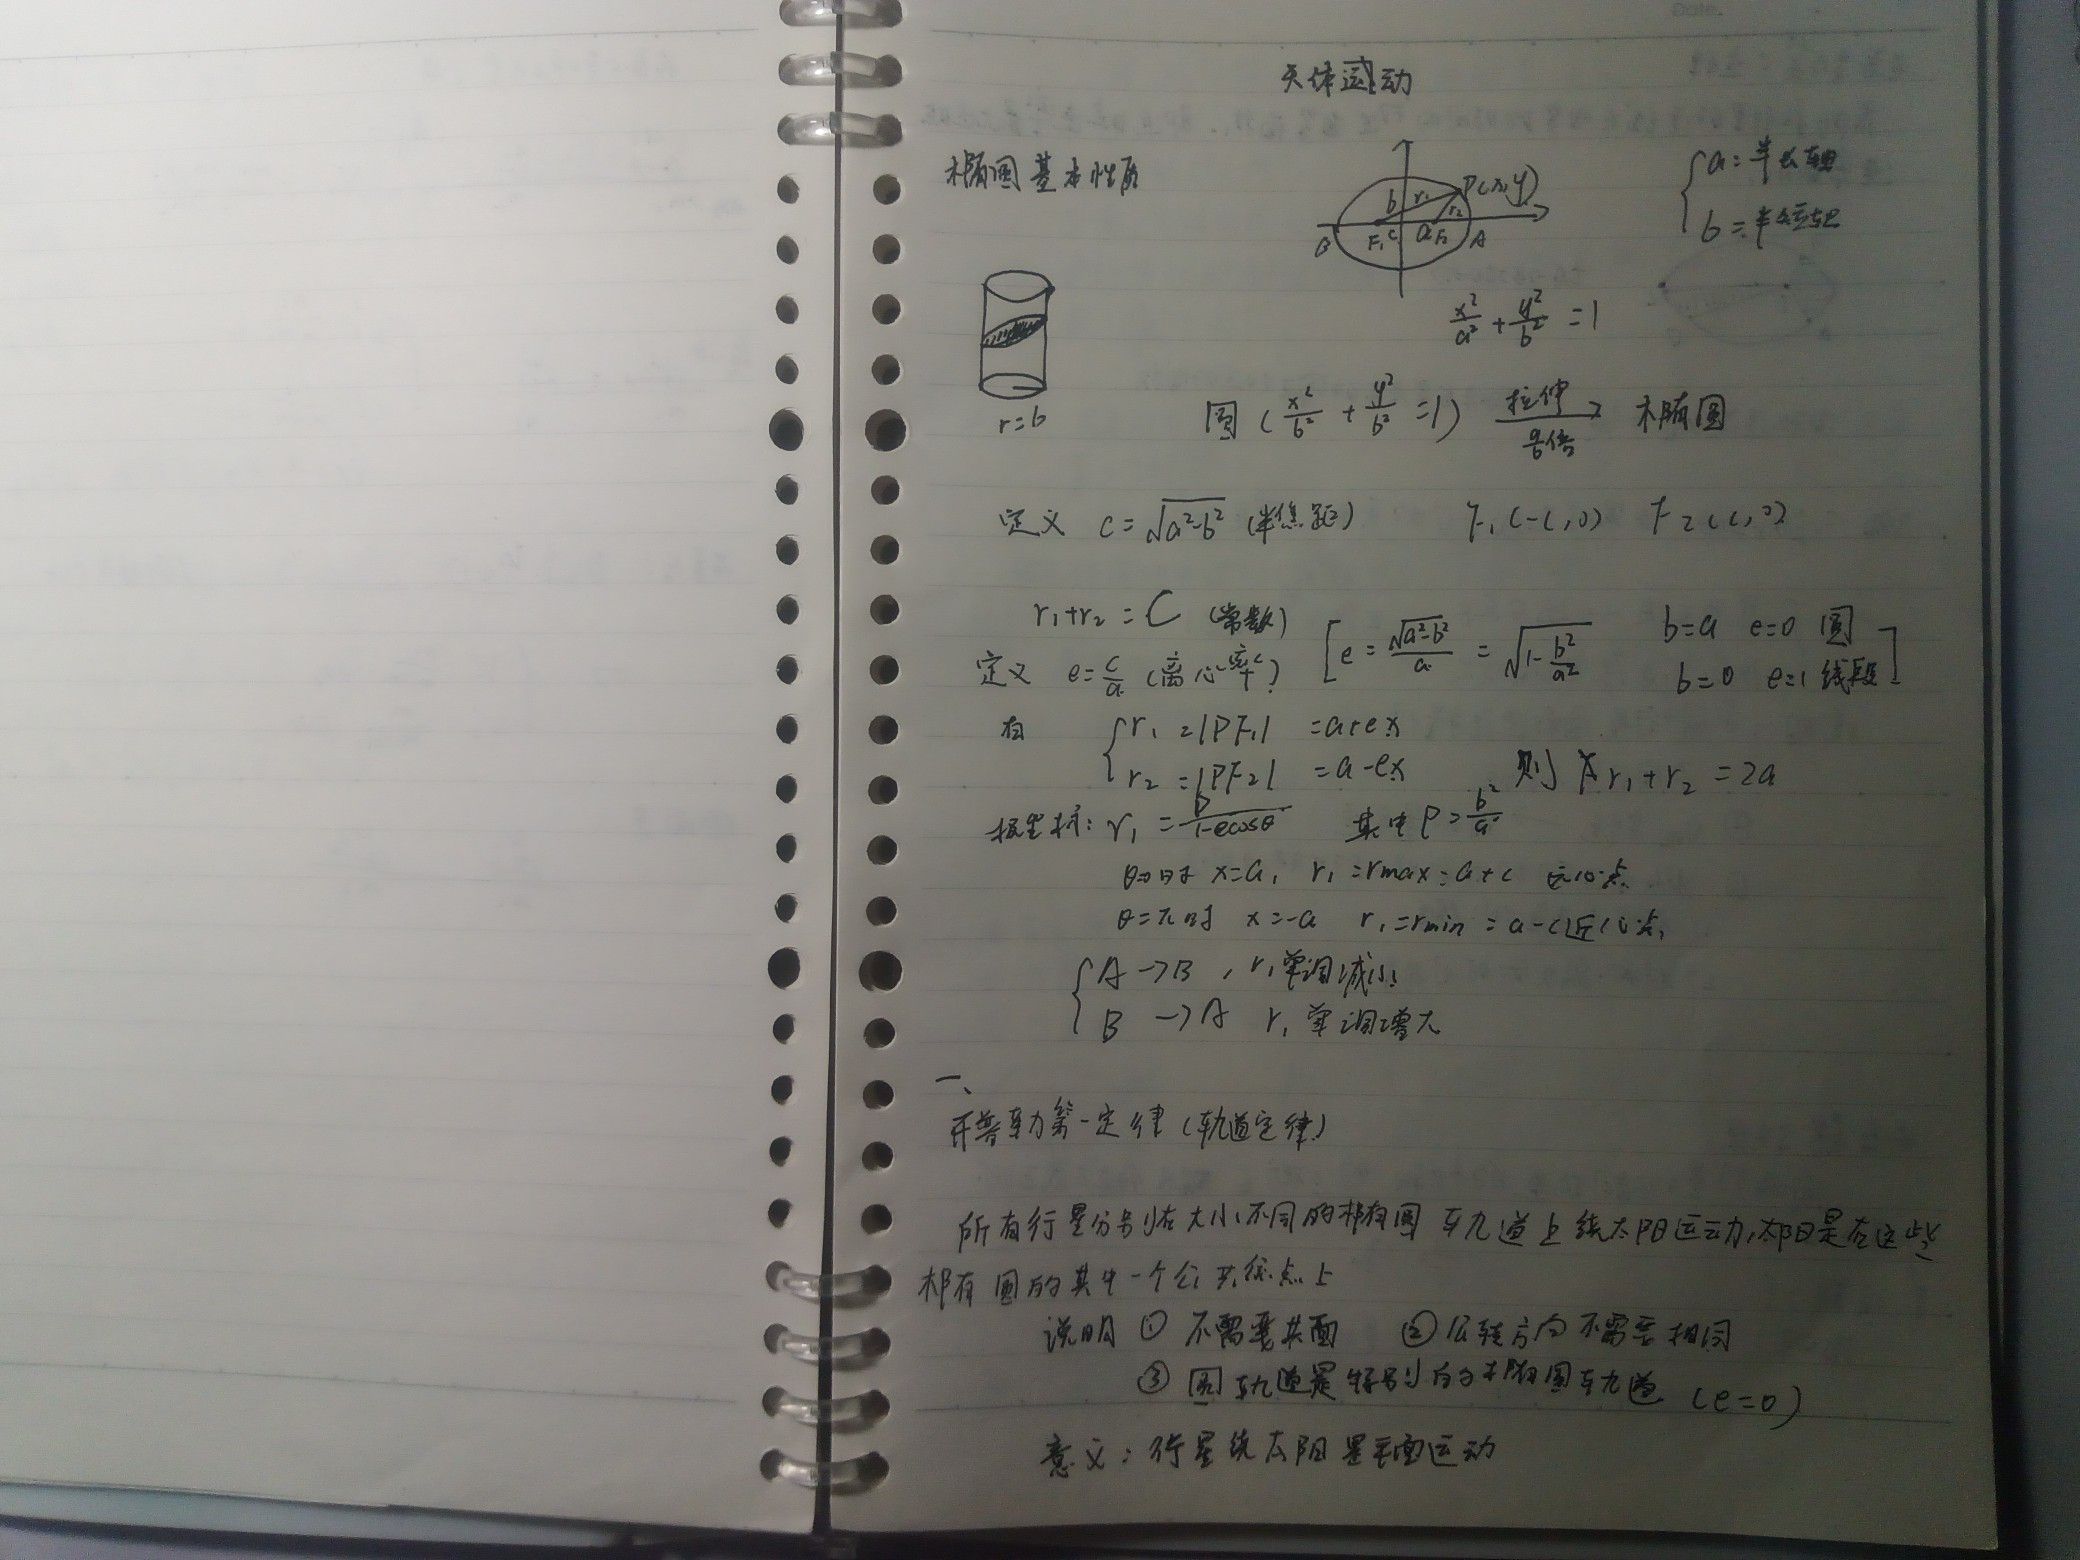 天体运动
椭圆基本性质
P(x,y)
b r₁ r₂
B F₁ c a F₂ A
{ a：半长轴
b：半短轴
x²/a² + y²/b² = 1
r=b
圆 ( x²/b² + y²/b² =1 ) 拉伸 a/b倍 → 椭圆
定义 c=√(a²-b²) (半焦距) F₁(-c,0) F₂(c,0)
r₁+r₂ = C (常数)
定义 e=c/a (离心率) [ e = √(a²-b²)/a = √(1-b²/a²) b=a e=0 圆
b=0 e=1 线段 ]
有 { r₁ =|PF₁| =a+ex
r₂ =|PF₂| =a-ex 则 r₁+r₂ =2a
极坐标: r₁ = p/(1-ecosθ) 其中 p=b²/a
θ=0时 x=a, r₁=rmax=a+c 远心点
θ=π时 x=-a r₁=rmin=a-c近心点
{ A→B, r₁单调减小
B →A r₁单调增大
一、
开普勒第一定律(轨道定律)
所有行星分别在大小不同的椭圆轨道上绕太阳运动,太阳是在这些
椭圆的其中一个公共焦点上
说明 ① 不需要共面 ②公转方向不需要相同
③ 圆轨道是特别的椭圆轨道 (e=0)
意义：行星绕太阳是平面运动